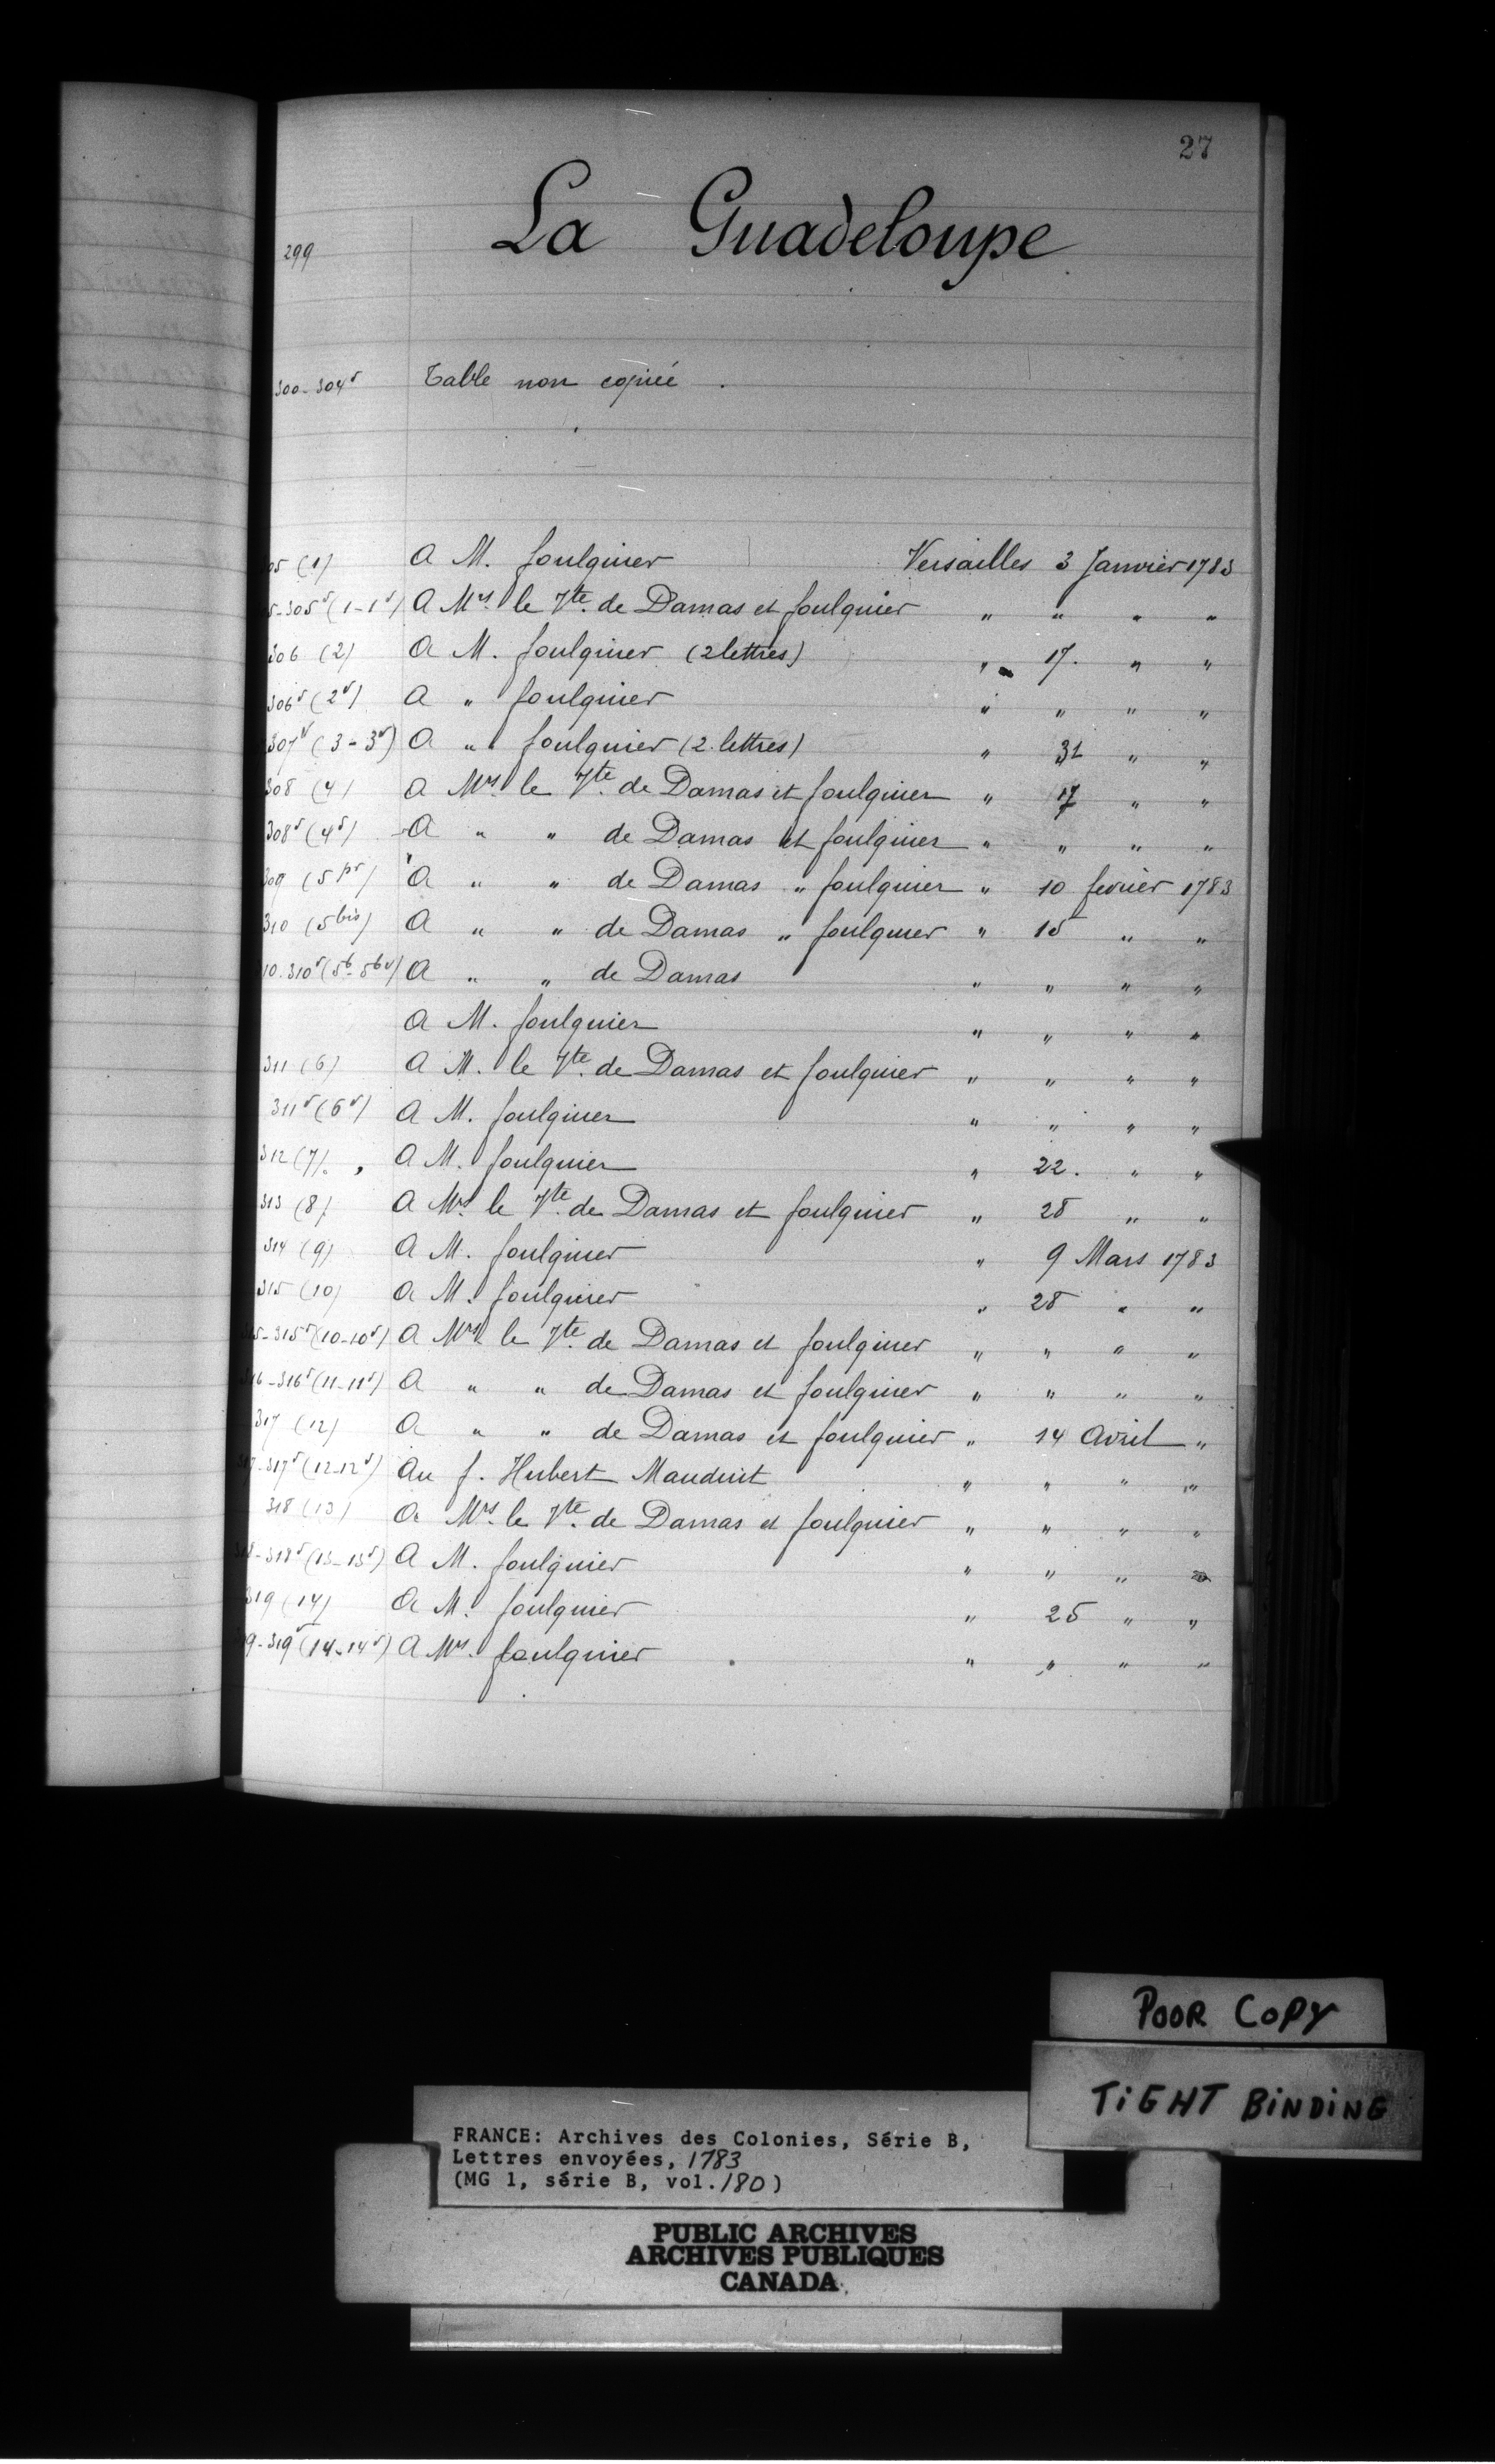 27
La Guadeloupe
299
300-304v Table non copiée.
05 (1) A M. foulquier Versailles 3 Janvier 1783
5-305v (1-1v) A Mrs. le Vte. de Damas et foulquier " " " "
306 (2) A M. foulquier (2 lettres) " 17. " "
306v (2v) A " foulquier " " " "
307v (3-3v) A " foulquier (2 lettres) " 31 " "
308 (4) A Mrs. le Vte. de Damas et foulquier " 17 " "
308v (4v) A " " de Damas et foulquier " " " "
309 (5 pr) A " " de Damas " foulquier " 10 fevrier 1783
310 (5bis) A " " de Damas " foulquier " 15 " "
10.310v (5b-5bv) A " " de Damas " " " "
A M. foulquier " " " "
311 (6) A M. le Vte. de Damas et foulquier " " " "
311v (6v) A M. foulquier " " " "
312 (7). A M. foulquier " 22. " "
313 (8) A Mrs. le Vte. de Damas et foulquier " 28 " "
314 (9) A M. foulquier " 9 Mars 1783
315 (10) A M. foulquier " 28 " "
315-315v (10-10v) A Mrs. le Vte. de Damas et foulquier " " " "
316-316v (11-11v) A " " de Damas et foulquier " " " "
317 (12) A " " de Damas et foulquier " 14 Avril "
317-317v (12-12v) Au f. Hubert Mauduit " " " "
318 (13) A Mrs. le Vte. de Damas et foulquier " " " "
318-318v (13-13v) A M. foulquier " " " "
319 (14) A M. foulquier " 25 " "
9-319v (14-14v) A Mrs. foulquier " " " "
POOR COPY
TIGHT BINDING
FRANCE: Archives des Colonies, Série B,
Lettres envoyées, 1783
(MG 1, série B, vol. 180)
PUBLIC ARCHIVES
ARCHIVES PUBLIQUES
CANADA